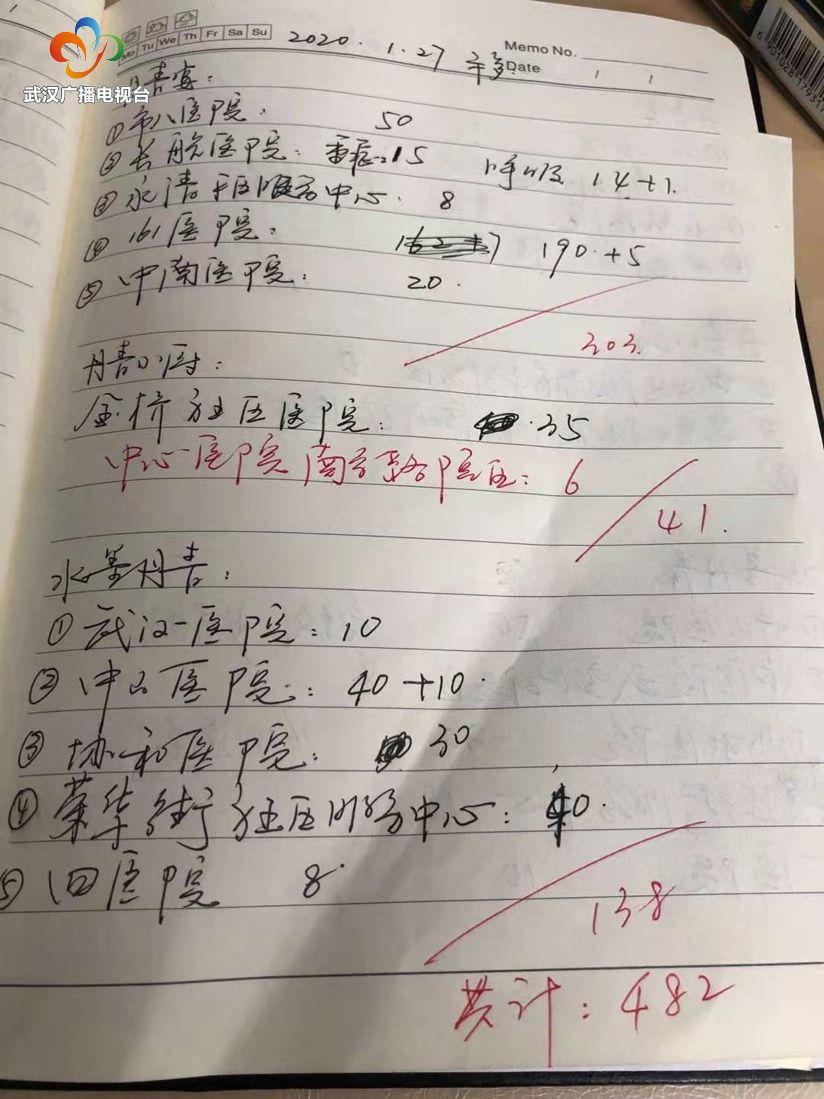 武汉广播电视台
Mo Tu We Th Fr Sa Su
Memo No.
Date / /
2020.1.27
青宴:
①市八医院: 50
②长航医院: 15 呼吸 14+1.
③永清社区服务中心. 8
④161医院: 190.+5
⑤中南医院: 20.
303.
丹青小厨:
金桥社区医院: 35
中心医院南京路院区: 6
41.
水墨丹青:
①武汉一医院: 10
②中山医院: 40+10.
③协和医院: 30
④荣华街社区服务中心: 40.
⑤四医院 8.
138
共计: 482
6901028179317